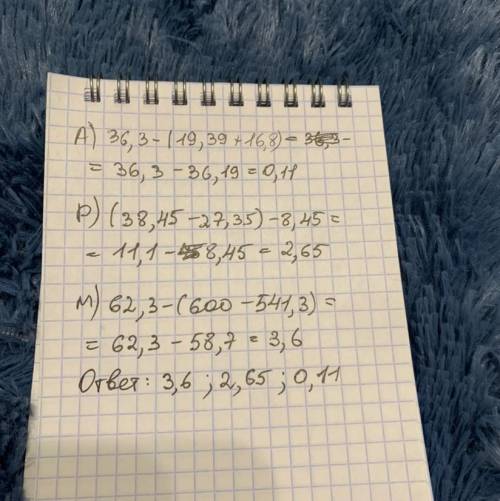 А) 36,3-(19,39+16,8)= 36,3-
= 36,3 - 36,19 = 0,11
Р) (38,45 -27,35) -8,45 =
= 11,1 - 8,45 = 2,65
М) 62,3 -(600 -541,3) =
= 62,3 - 58,7 = 3,6
Ответ: 3,6 ; 2,65 ; 0,11